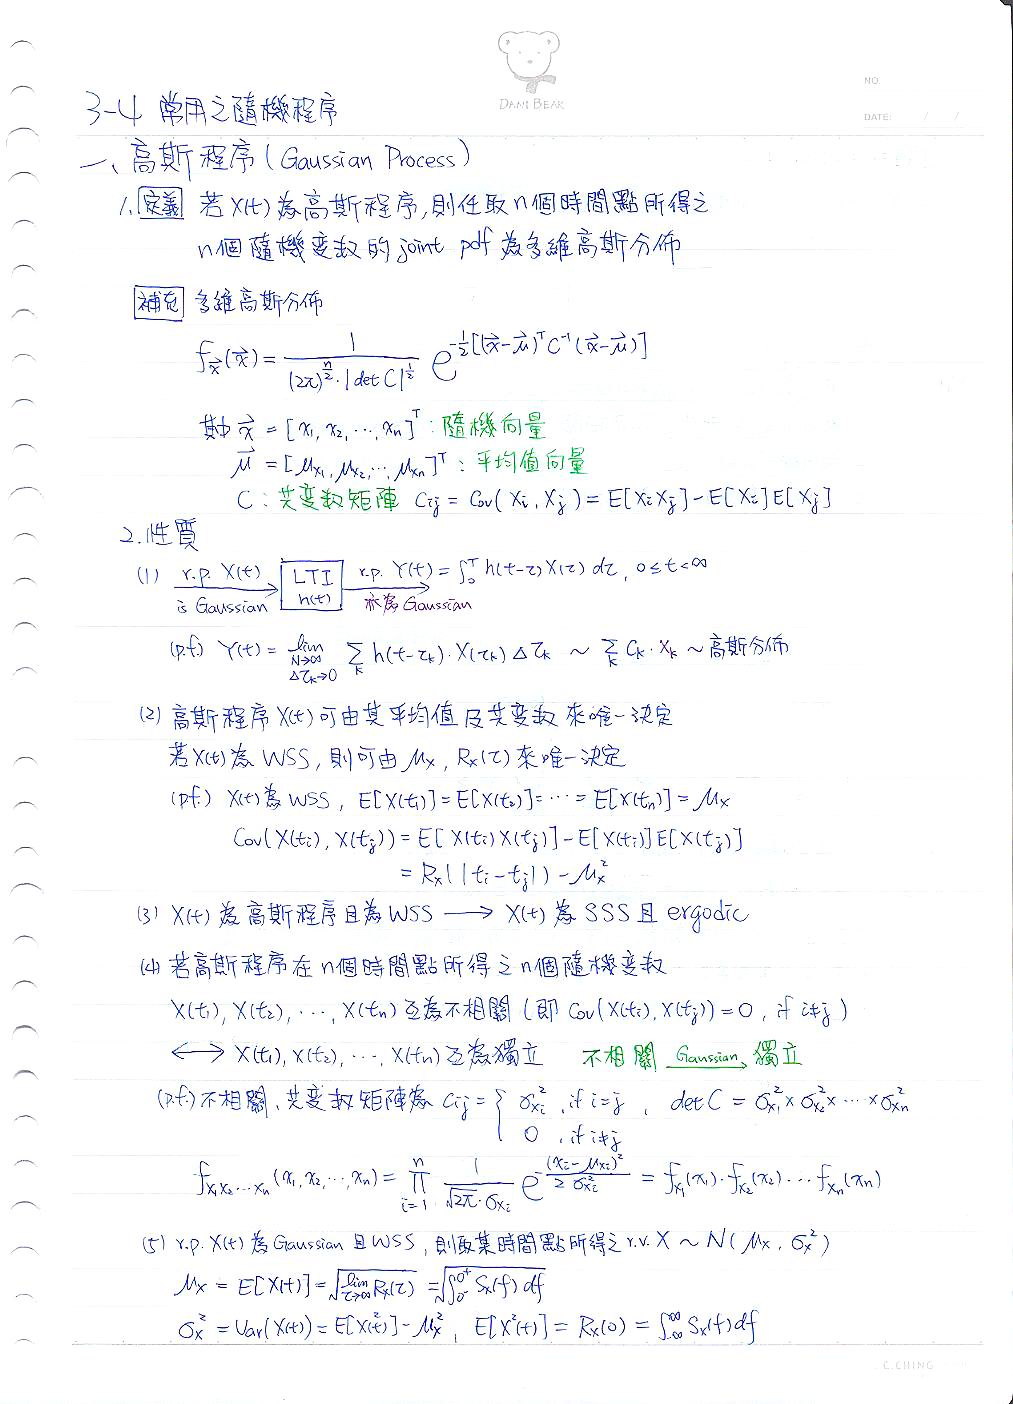 DANI BEAR
NO.
DATE: / /
3-4 常用之隨機程序
一、高斯程序(Gaussian Process)
1. 定義 若X(t)為高斯程序,則任取n個時間點所得之
n個隨機变数的joint pdf為多維高斯分佈
補充 多維高斯分佈
f_x⃗(x⃗) = 1 / ((2π)^(n/2)·|det C|^(1/2)) e^(-1/2[(x⃗-μ⃗)^T C^-1 (x⃗-μ⃗)])
其中 x⃗ = [x₁, x₂, ..., xn]^T : 隨機向量
μ⃗ = [μx₁, μx₂, ..., μxn]^T : 平均值向量
C : 共变数矩陣 Cij = Cov(Xi, Xj) = E[XiXj] - E[Xi]E[Xj]
2. 性質
(1) r.p. X(t) is Gaussian → LTI h(t) → r.p. Y(t) = ∫₀^T h(t-τ)X(τ)dτ, 0≤t<∞ 亦為Gaussian
(p.f.) Y(t) = lim N→∞ Δτk→0 Σk h(t-τk)·X(τk)Δτk ~ Σk Ck·Xk ~ 高斯分佈
(2) 高斯程序X(t)可由其平均值及共变数來唯一決定
若X(t)為WSS,則可由μx, Rx(τ)來唯一決定
(pf.) X(t)為WSS, E[X(t₁)] = E[X(t₂)] = ... = E[X(tn)] = μx
Cov(X(ti), X(tj)) = E[X(ti)X(tj)] - E[X(ti)]E[X(tj)]
= Rx(|ti-tj|) - μx²
(3) X(t)為高斯程序且為WSS ⟶ X(t)為SSS且ergodic
(4) 若高斯程序在n個時間點所得之n個隨機变数
X(t₁), X(t₂), ..., X(tn)互為不相關(即Cov(X(ti), X(tj)) = 0, if i≠j)
⟷ X(t₁), X(t₂), ..., X(tn)互為獨立 不相關 Gaussian→ 獨立
(p.f.)不相關、共变数矩陣為 Cij = { σxi², if i=j , det C = σx₁²×σx₂²×...×σxn²
0 , if i≠j
f_x₁x₂...xn(x₁, x₂, ..., xn) = ∏ i=1 n 1/(√2π·σxi) e^(-(xi-μxi)²/2σxi²) = fx₁(x₁)·fx₂(x₂)...fxn(xn)
(5) r.p. X(t)為Gaussian且WSS,則取某時間點所得之r.v. X ~ N(μx, σx²)
μx = E[X(t)] = √(lim τ→∞ Rx(τ)) = √(∫₀-^0+ Sx(f)df)
σx² = Var(X(t)) = E[X²(t)] - μx², E[X²(t)] = Rx(0) = ∫-∞^∞ Sx(f)df
C.CHING